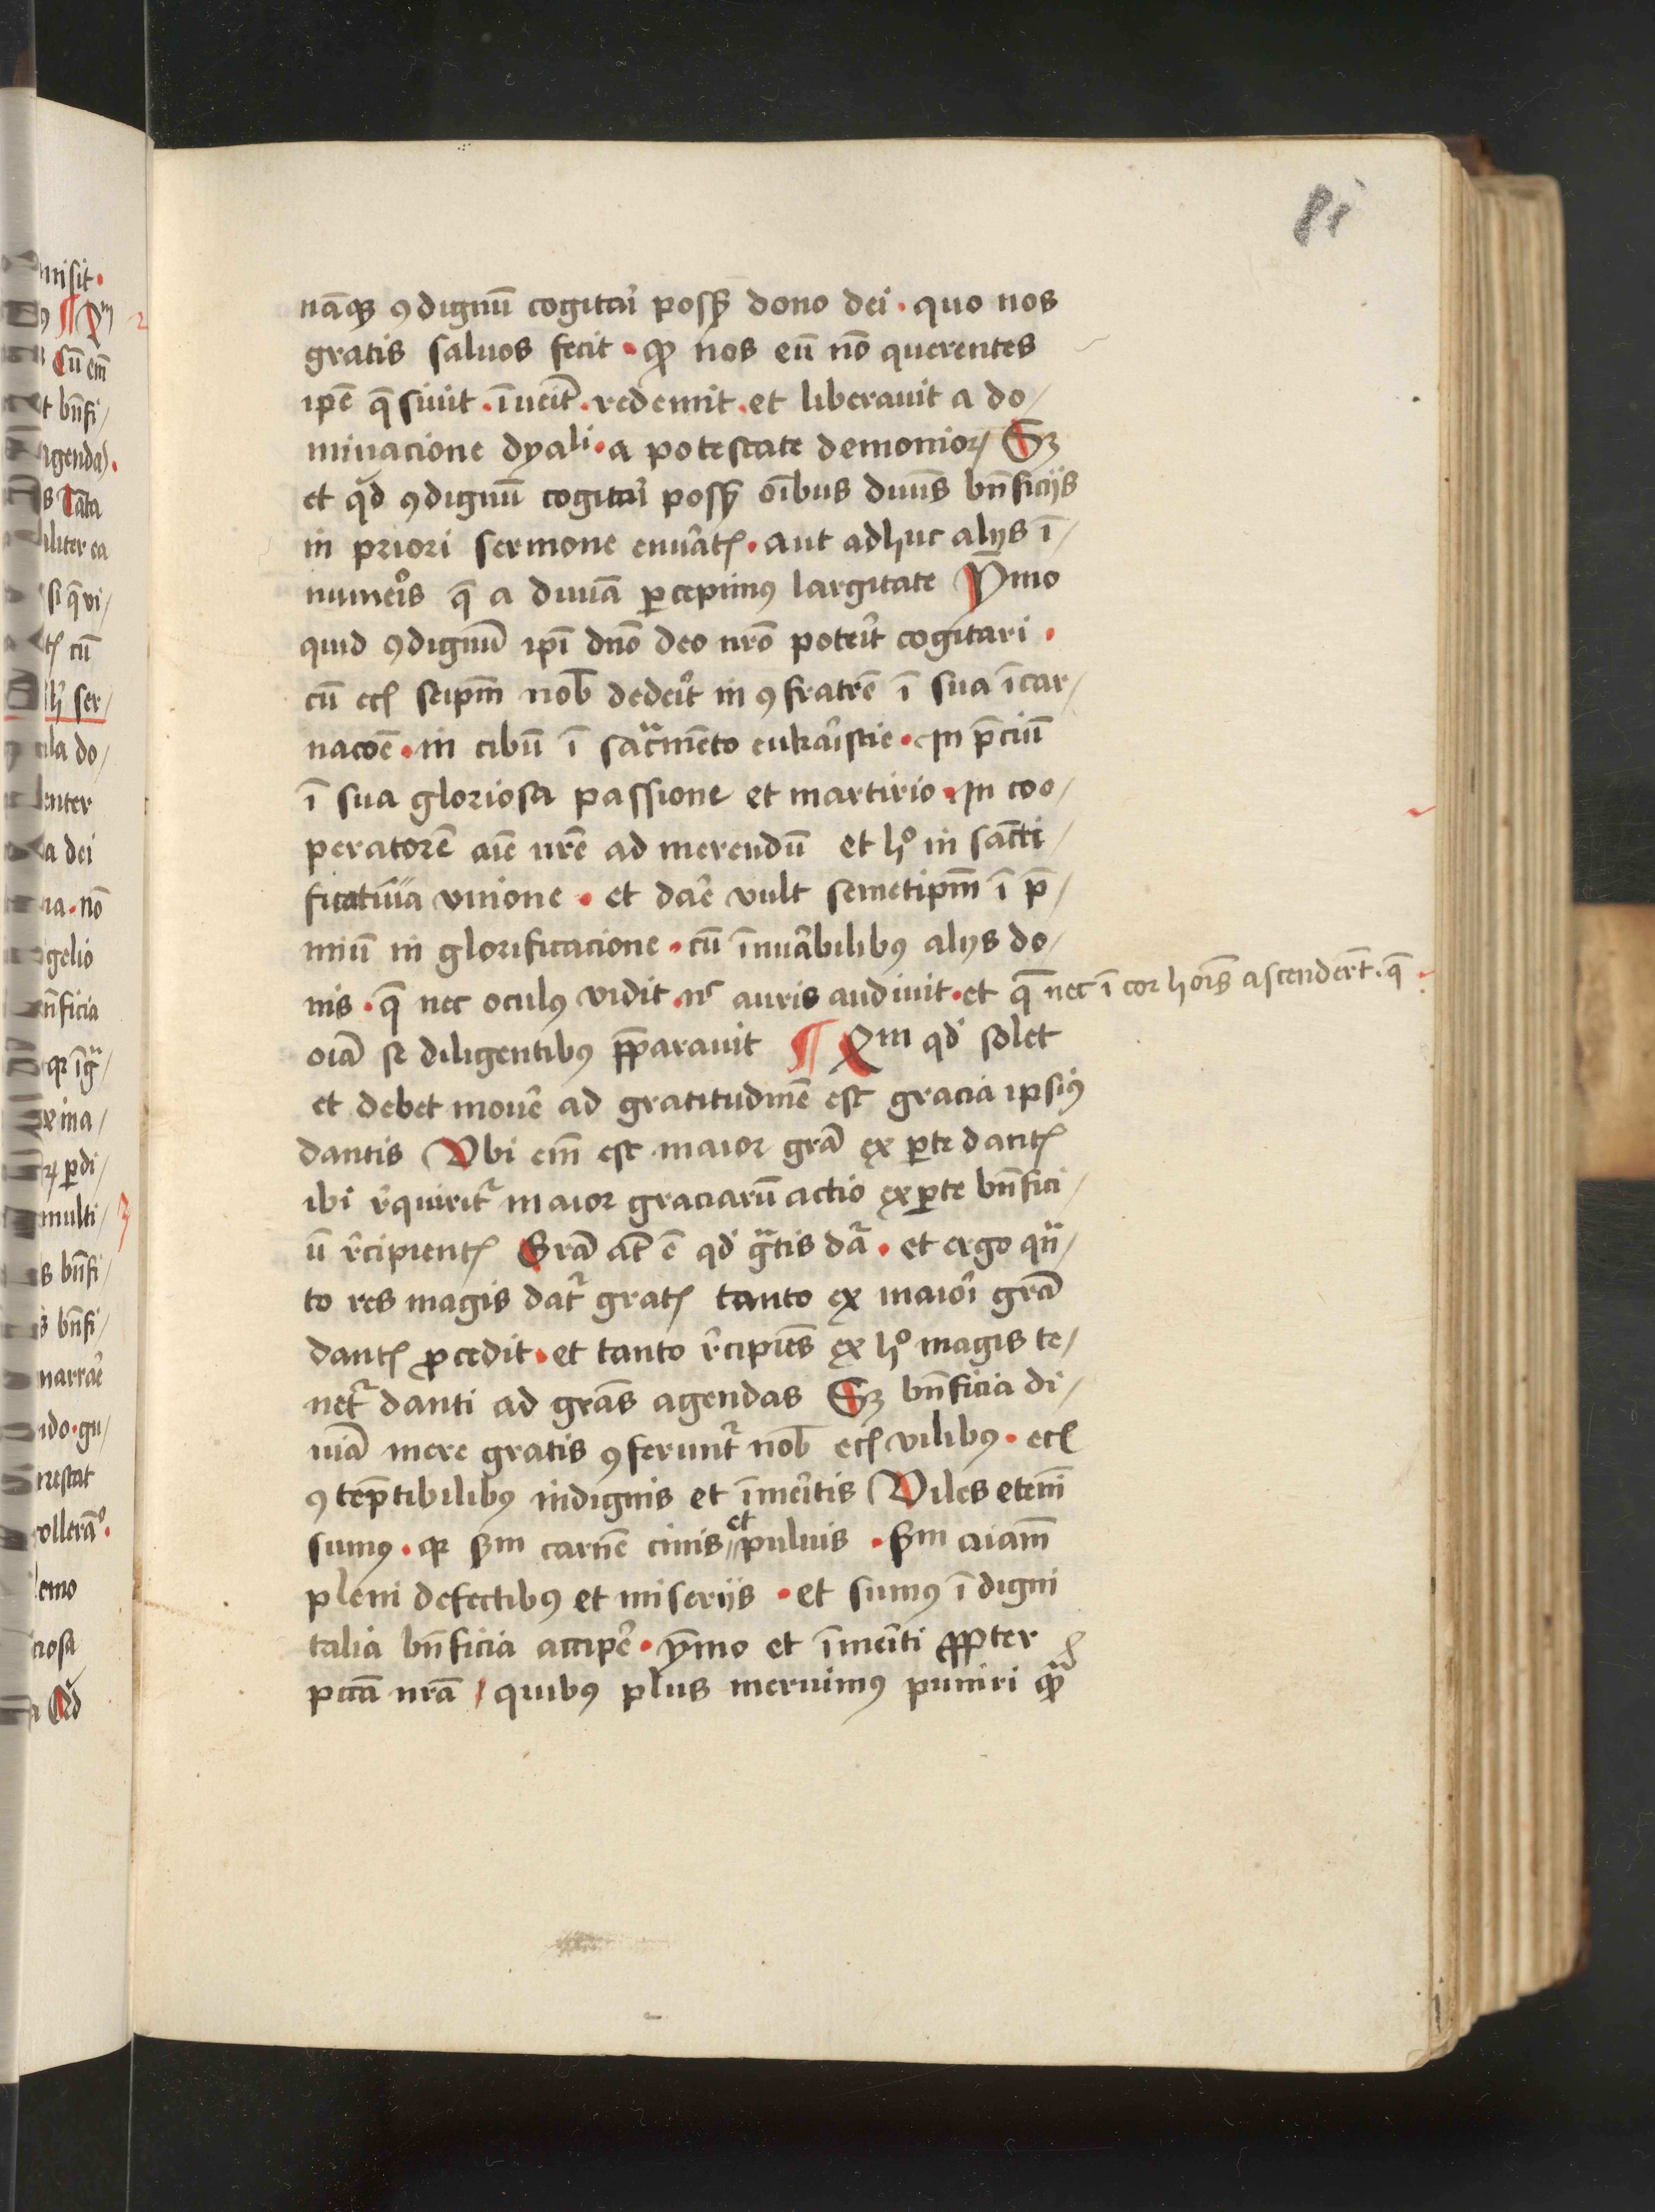 81
namqȝ ꝯdignū cogitaꝛi possꝫ dono dei · quo nos
gratis saluos fecit · qꝫ nos eū nō querentes
ip̄e q̄siuit · īueīt · redemit · et liberauit a do/
minacione dyaˡⁱ · a potestate demonioꝝ Sꝫ
et qͥd ꝯdignū cogitaꝛi possꝫ oībus diuīs bn̄ficijs
in priori sermone enūatꝭ · aut adhuc alijs ī/
numeꝛis q̄ a diuīa ꝑcepimꝰ largitate Ymo
quid ꝯdignū ip̄i dn̄o deo nr̄o poteīt cogitari ·
cū ecꝭ seip̄m nob̄ dedeīt in ꝯfratrē ī sua īcar/
nacōe · in cibū ī sac̄mēto eukaꝛistie · In p̄ciū
ī sua gloriosa passione et martirio · In coo/
peratorē aīe nr̄e ad merendū et hͦ in sāctī/
ficatiua vnione · et daꝛe vult semetip̄m ī p̄/
miū in glorificacione · cū īnuāabilibꝰ alijs do/
nis · q̄ nec oculꝰ vidit · nᶜ auris audiuit · et q̄ nec ī cor hoīs ascendert̄ · q̄
oīa se diligentibꝰ p̄parauit ¶ Xm qđ solet
et debet mouē ad gratitudinē est gracia ipsiꝰ
dantis Vbi em̄ est maior grā ex ꝑte dantꝭ
ibi r̄quiritᷣ maior graciarū actio ex ꝑte bn̄fici/
ū r̄cipientꝭ Grā āt ē qđ gᷓtis dāᷣ · et ergo qᷓn/
to res magis datᷣ gratꝭ tanto ex maioꝛi grā
dantꝭ ꝓcedit · et tanto r̄cipiēs ex hͦ magis te/
netᷣ danti ad grās agendas Sꝫ bn̄ficia di/
uīa mere gratis ꝯferuntᷣ nob̄ ecꝭ vilibꝰ · ecꝭ
ꝯtēptibilibꝰ indignis et īmeꝛitis Viles etenī
sumꝰ · qꝛ sm̄ carnē cinis et puluis · sm̄ aīam
pleni defectibꝰ et miserijs · et sumꝰ īdigni
talia bn̄ficia accipē · ymo et īmeꝛiti ꝓpter
pctā nr̄a / quibꝰ plus meruimꝰ puniri qᷓꝫ